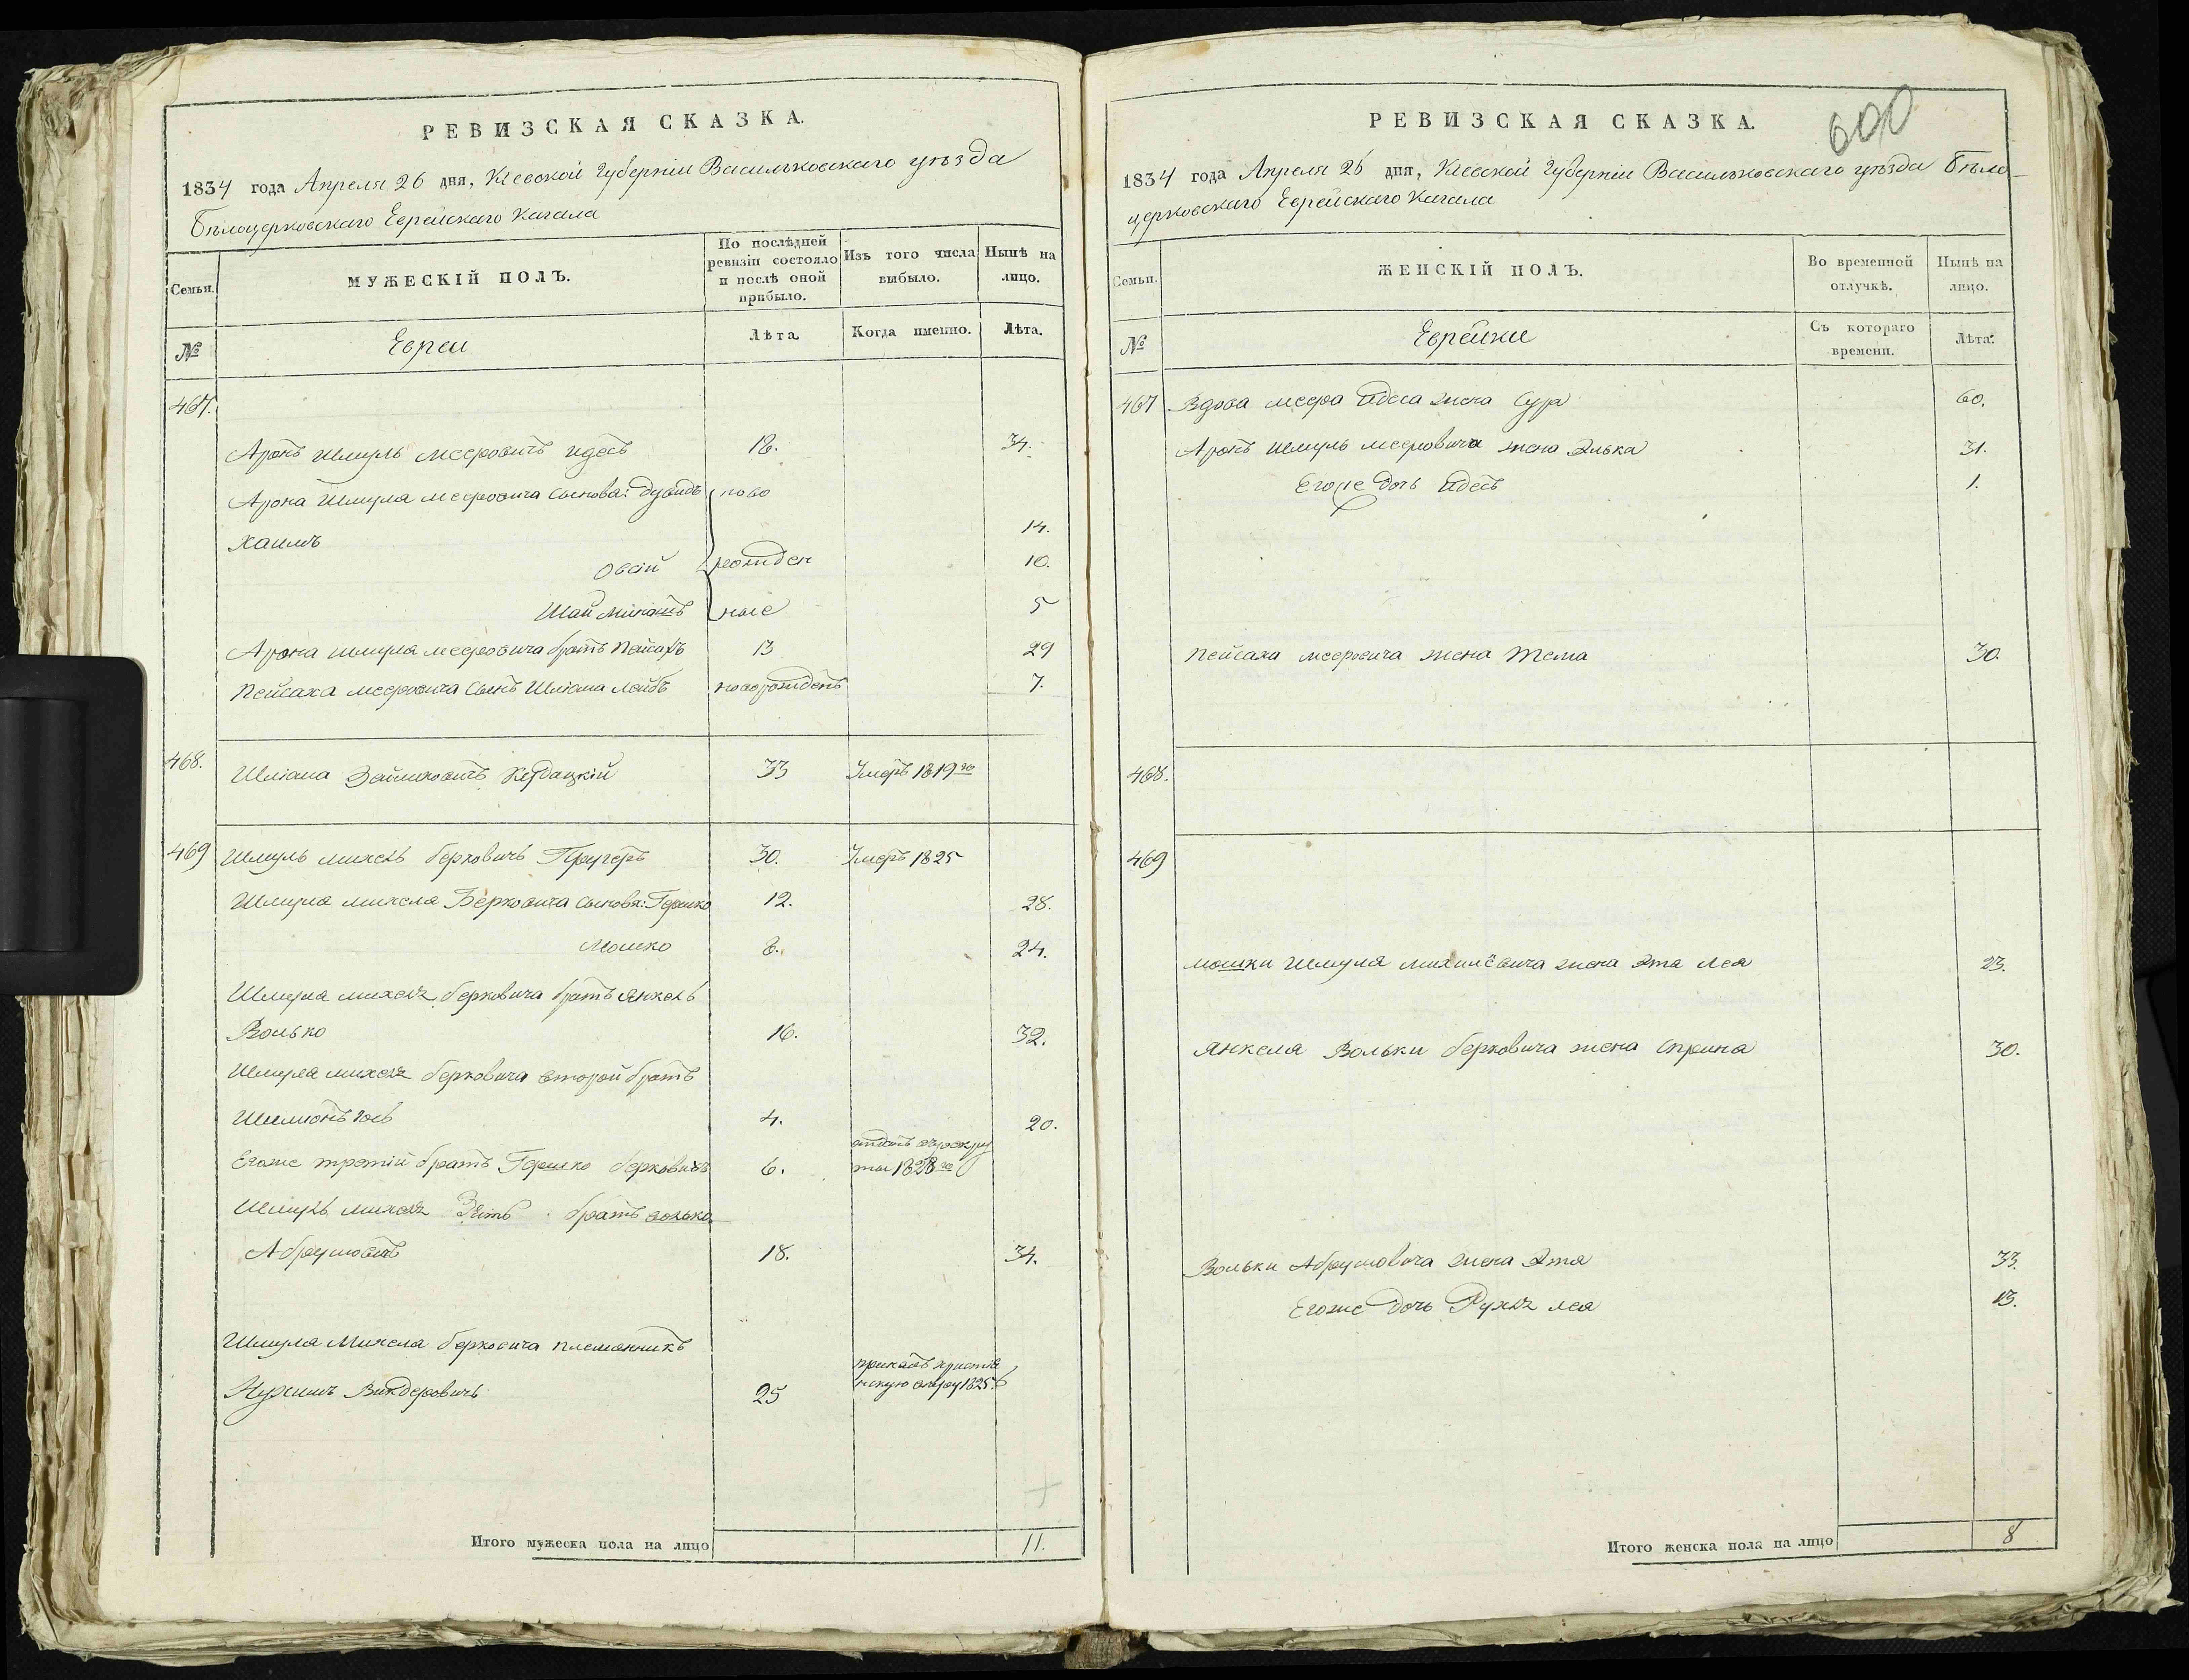 РЕВИЗСКАЯ СКАЗКА.
1834 года Апреля 26 дня, Кіевской Губерніи Васильковскаго уѣзда
Бѣлоцерковскаго Еврейскаго Кагала
Семьи.
МУЖЕСКІЙ ПОЛЪ.
По послѣдней ревизіи состояло и послѣ оной прибыло.
Изъ того числа выбыло.
Нынѣ на лицо.
№
Евреи
Лѣта.
Когда именно.
Лѣта.
467.
Аронъ Шмуль Мееровичъ Идесъ 18. 34.
Арона Шмуля Мееровича сыновья: Дувидъ ново
Хаимъ 14.
Овсій рожден 10.
Шай ные 5
Арона Шмуля Мееровича братъ Пейсахъ 13 29
Пейсаха Мееровича сынъ Шліома Лейбъ новорожденъ 7.
468. Шліома 33 Умеръ 1819го
469 Шмуль Михель Берковичъ 30. Умеръ 1825
Шмуля Михеля Берковича сыновья: Гершко 12. 28.
Мошко 8. 24.
Шмуля Михеля Берковича братъ Янкель
Волько 16. 32.
Шмуля Михеля Берковича второй братъ
4. 20.
Егоже третій братъ Гершко Берковичъ 6. отданъ въ рекру
ты 1828го
Шмуль Михеля Зять братъ Волько
Абрумовичъ 18. 34.
Шмуля Михеля Берковича племянникъ
Нухимъ 25 христіа
нскую вѣру 1825.
Итого мужеска пола на лицо 11.
600
РЕВИЗСКАЯ СКАЗКА.
1834 года Апреля 26 дня, Кіевской Губерніи Васильковскаго уѣзда Бѣло-
церковскаго Еврейскаго Кагала
Семьи.
ЖЕНСКІЙ ПОЛЪ.
Во временной отлучкѣ.
Нынѣ на лицо.
№
Еврейки
Съ котораго времени.
Лѣта.
467 Вдова Меера Идеса жена Сура 60.
Аронъ Шмуль Мееровича жена Элька 31.
Егоже дочь Идесъ 1.
Пейсаха Мееровича жена Тема 30.
468.
469
Мошки Шмуля Михилевича жена Эта Лея 23.
Янкеля Вольки Берковича жена Сприна 30.
Вольки Абрумовича жена Этя 33.
Егоже дочь Рухля Лея 13.
Итого женска пола на лицо 8